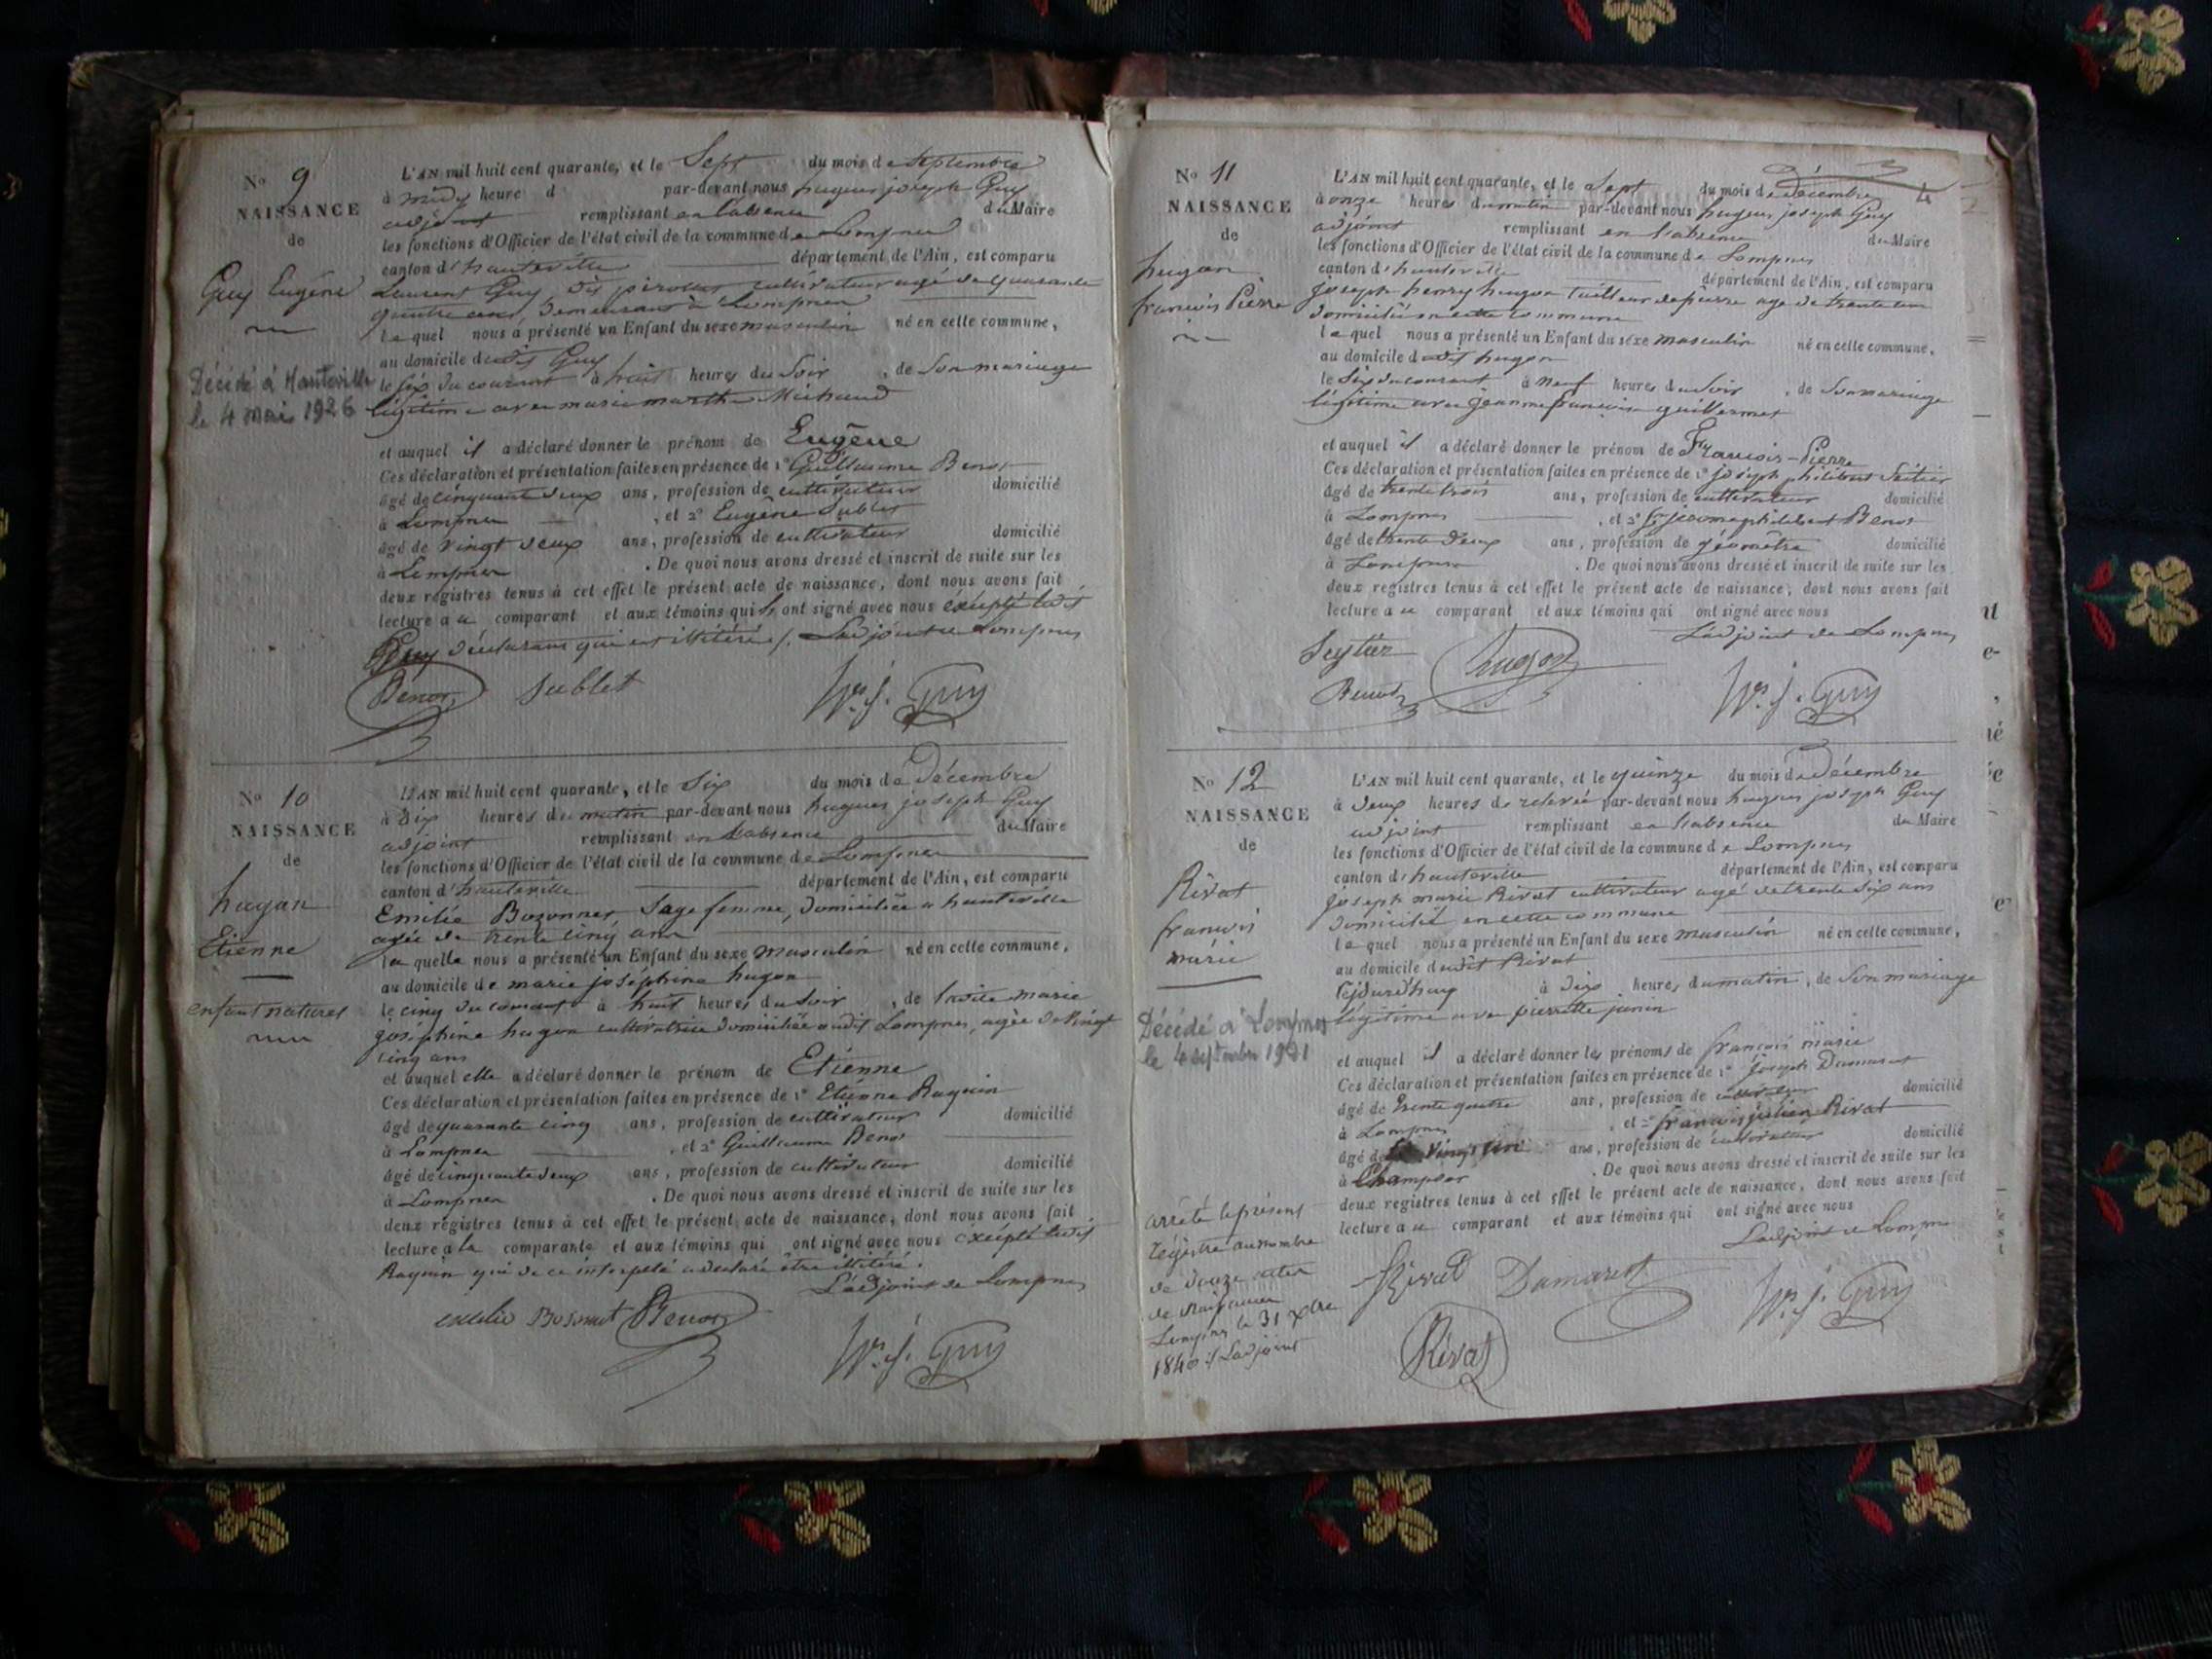 No 9
NAISSANCE
de
Guy Eugène
Décédé à Hauteville
le 4 mai 1926
L'AN mil huit cent quarante, et le Sept du mois de Septembre
à midy heure d par-devant nous hugues joseph Guy
adjoint remplissant en l'absence du Maire
les fonctions d'Officier de l'état civil de la commune de Lompnes
canton d'hauteville département de l'Ain, est comparu
Laurent Guy dit cultivateur agé de quarante
quatre ans, demeurant à Lompnes
lequel nous a présenté un Enfant du sexe masculin né en cette commune,
au domicile dudit Guy
le six du courant à huit heures du Soir, de Son mariage
légitime avec marie marthe Michaud
et auquel il a déclaré donner le prénom de Eugène
Ces déclaration et présentation faites en présence de 1° Guillaume Benoz
âgé de cinquante deux ans, profession de cultivateur domicilié
à Lompnes, et 2° Eugène Sublet
âgé de vingt deux ans, profession de cultivateur domicilié
à Lompnes. De quoi nous avons dressé et inscrit de suite sur les
deux registres tenus à cet effet le présent acte de naissance, dont nous avons fait
lecture au comparant et aux témoins qui ont signé avec nous éxcépté ledit
Guy déclarant qui est illitéré /. L'adjoint de Lompnes
Benoz Sublet hgs. j. Guy
No 10
NAISSANCE
de
hugon
Etienne
enfant naturel
L'AN mil huit cent quarante, et le Six du mois de Décembre
à Dix heures du matin par-devant nous hugues joseph Guy
adjoint remplissant en l'absence du Maire
les fonctions d'Officier de l'état civil de la commune de Lompnes
canton d'hauteville département de l'Ain, est comparu
Emilie Bozonnet Sage femme, domiciliée à hauteville
agée de trente cinq ans
laquelle nous a présenté un Enfant du sexe masculin né en cette commune,
au domicile de marie joséphine hugon
le cinq du courant à huit heures du Soir, de ladite marie
joséphine hugon cultivatrice domiciliée audit Lompnes, agée de vingt
cinq ans
et auquel elle a déclaré donner le prénom de Etienne
Ces déclaration et présentation faites en présence de 1° Etienne Raquin
âgé de quarante cinq ans, profession de cultivateur domicilié
à Lompnes, et 2° Guillaume Benoz
âgé de cinquante deux ans, profession de cultivateur domicilié
à Lompnes. De quoi nous avons dressé et inscrit de suite sur les
deux registres tenus à cet effet le présent acte de naissance, dont nous avons fait
lecture à la comparante et aux témoins qui ont signé avec nous éxcépté ledit
Raquin qui de ce interpelé a déclaré être illitéré.
L'adjoint de Lompnes
emelie Bosonnet Benoz hgs. j. Guy
No 11
NAISSANCE
de
hugon
francois Pierre
4
L'AN mil huit cent quarante, et le Sept du mois de Décembre
à onze heures du matin par-devant nous hugues joseph Guy
adjoint remplissant en l'absence du Maire
les fonctions d'Officier de l'état civil de la commune de Lompnes
canton d'hauteville département de l'Ain, est comparu
joseph henry hugon tailleur de pierre agé de trente
domicilié en cette commune
lequel nous a présenté un Enfant du sexe masculin né en cette commune,
au domicile dudit hugon
le Six du courant à neuf heures du Soir, de Son mariage
légitime avec jeanne françoise guillermet
et auquel il a déclaré donner le prénom de François-Pierre
Ces déclaration et présentation faites en présence de 1° joseph philibert Seitier
âgé de trente trois ans, profession de cultivateur domicilié
à Lompnes, et 2° philibert Benoz
âgé de trente deux ans, profession de géomètre domicilié
à Lompnes. De quoi nous avons dressé et inscrit de suite sur les
deux registres tenus à cet effet le présent acte de naissance, dont nous avons fait
lecture au comparant et aux témoins qui ont signé avec nous
L'adjoint de Lompnes
Seytier hugon
Benoz hgs. j. Guy
No 12
NAISSANCE
de
Rivat
francois
marie
Décédé à Lompnes
le 4 septembre 1921
L'AN mil huit cent quarante, et le quinze du mois de Décembre
à deux heures de relevée par-devant nous hugues joseph Guy
adjoint remplissant en l'absence du Maire
les fonctions d'Officier de l'état civil de la commune de Lompnes
canton d'hauteville département de l'Ain, est comparu
joseph marie Rivat cultivateur agé de trente Six ans
domicilié en cette commune
lequel nous a présenté un Enfant du sexe masculin né en cette commune,
au domicile dudit Rivat
à Dix heures du matin, de Son mariage
légitime avec pierrette janin
et auquel il a déclaré donner les prénoms de francois marie
Ces déclaration et présentation faites en présence de 1° Joseph Dumarest
âgé de trente quatre ans, profession de domicilié
à Lompnes, et 2° francois julien Rivat
âgé de ans, profession de cultivateur domicilié
à Champdor. De quoi nous avons dressé et inscrit de suite sur les
deux registres tenus à cet effet le présent acte de naissance, dont nous avons fait
lecture au comparant et aux témoins qui ont signé avec nous
L'adjoint de Lompnes
Rivat Dumarest hgs. j. Guy
Rivat
arrété le présent
régistre au nombre
de douze actes
de Naissance
Lompnes le 31 xbre
1840 /. L'adjoint